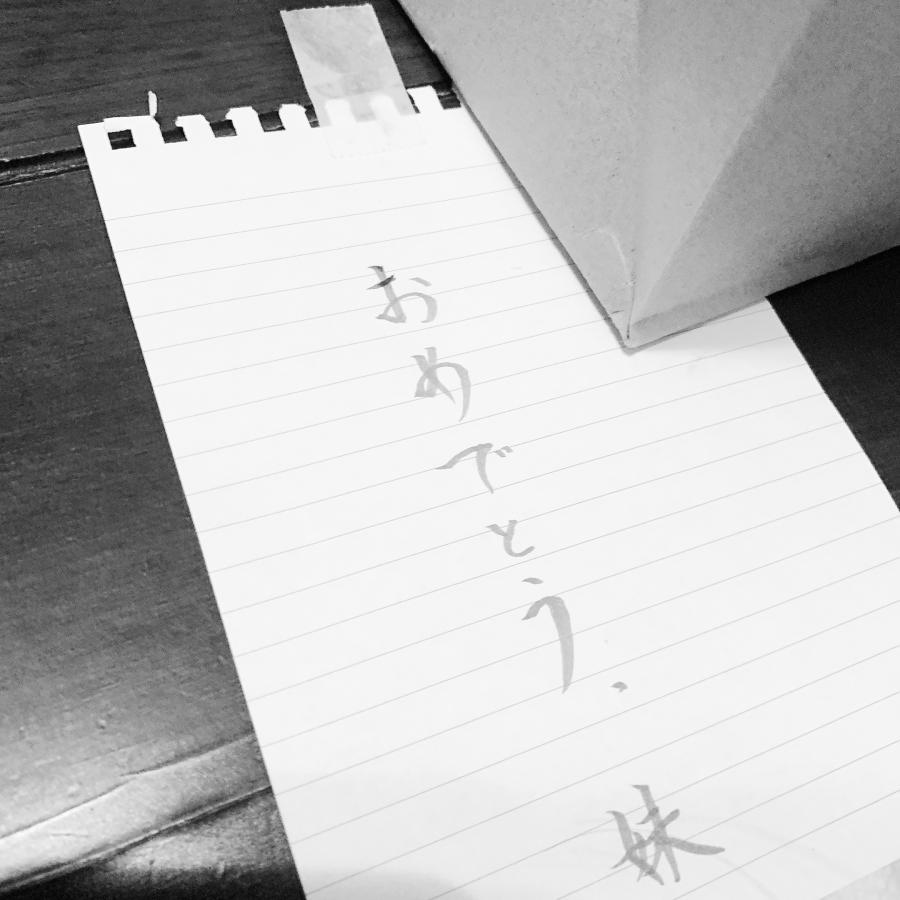 おめでとう.
妹